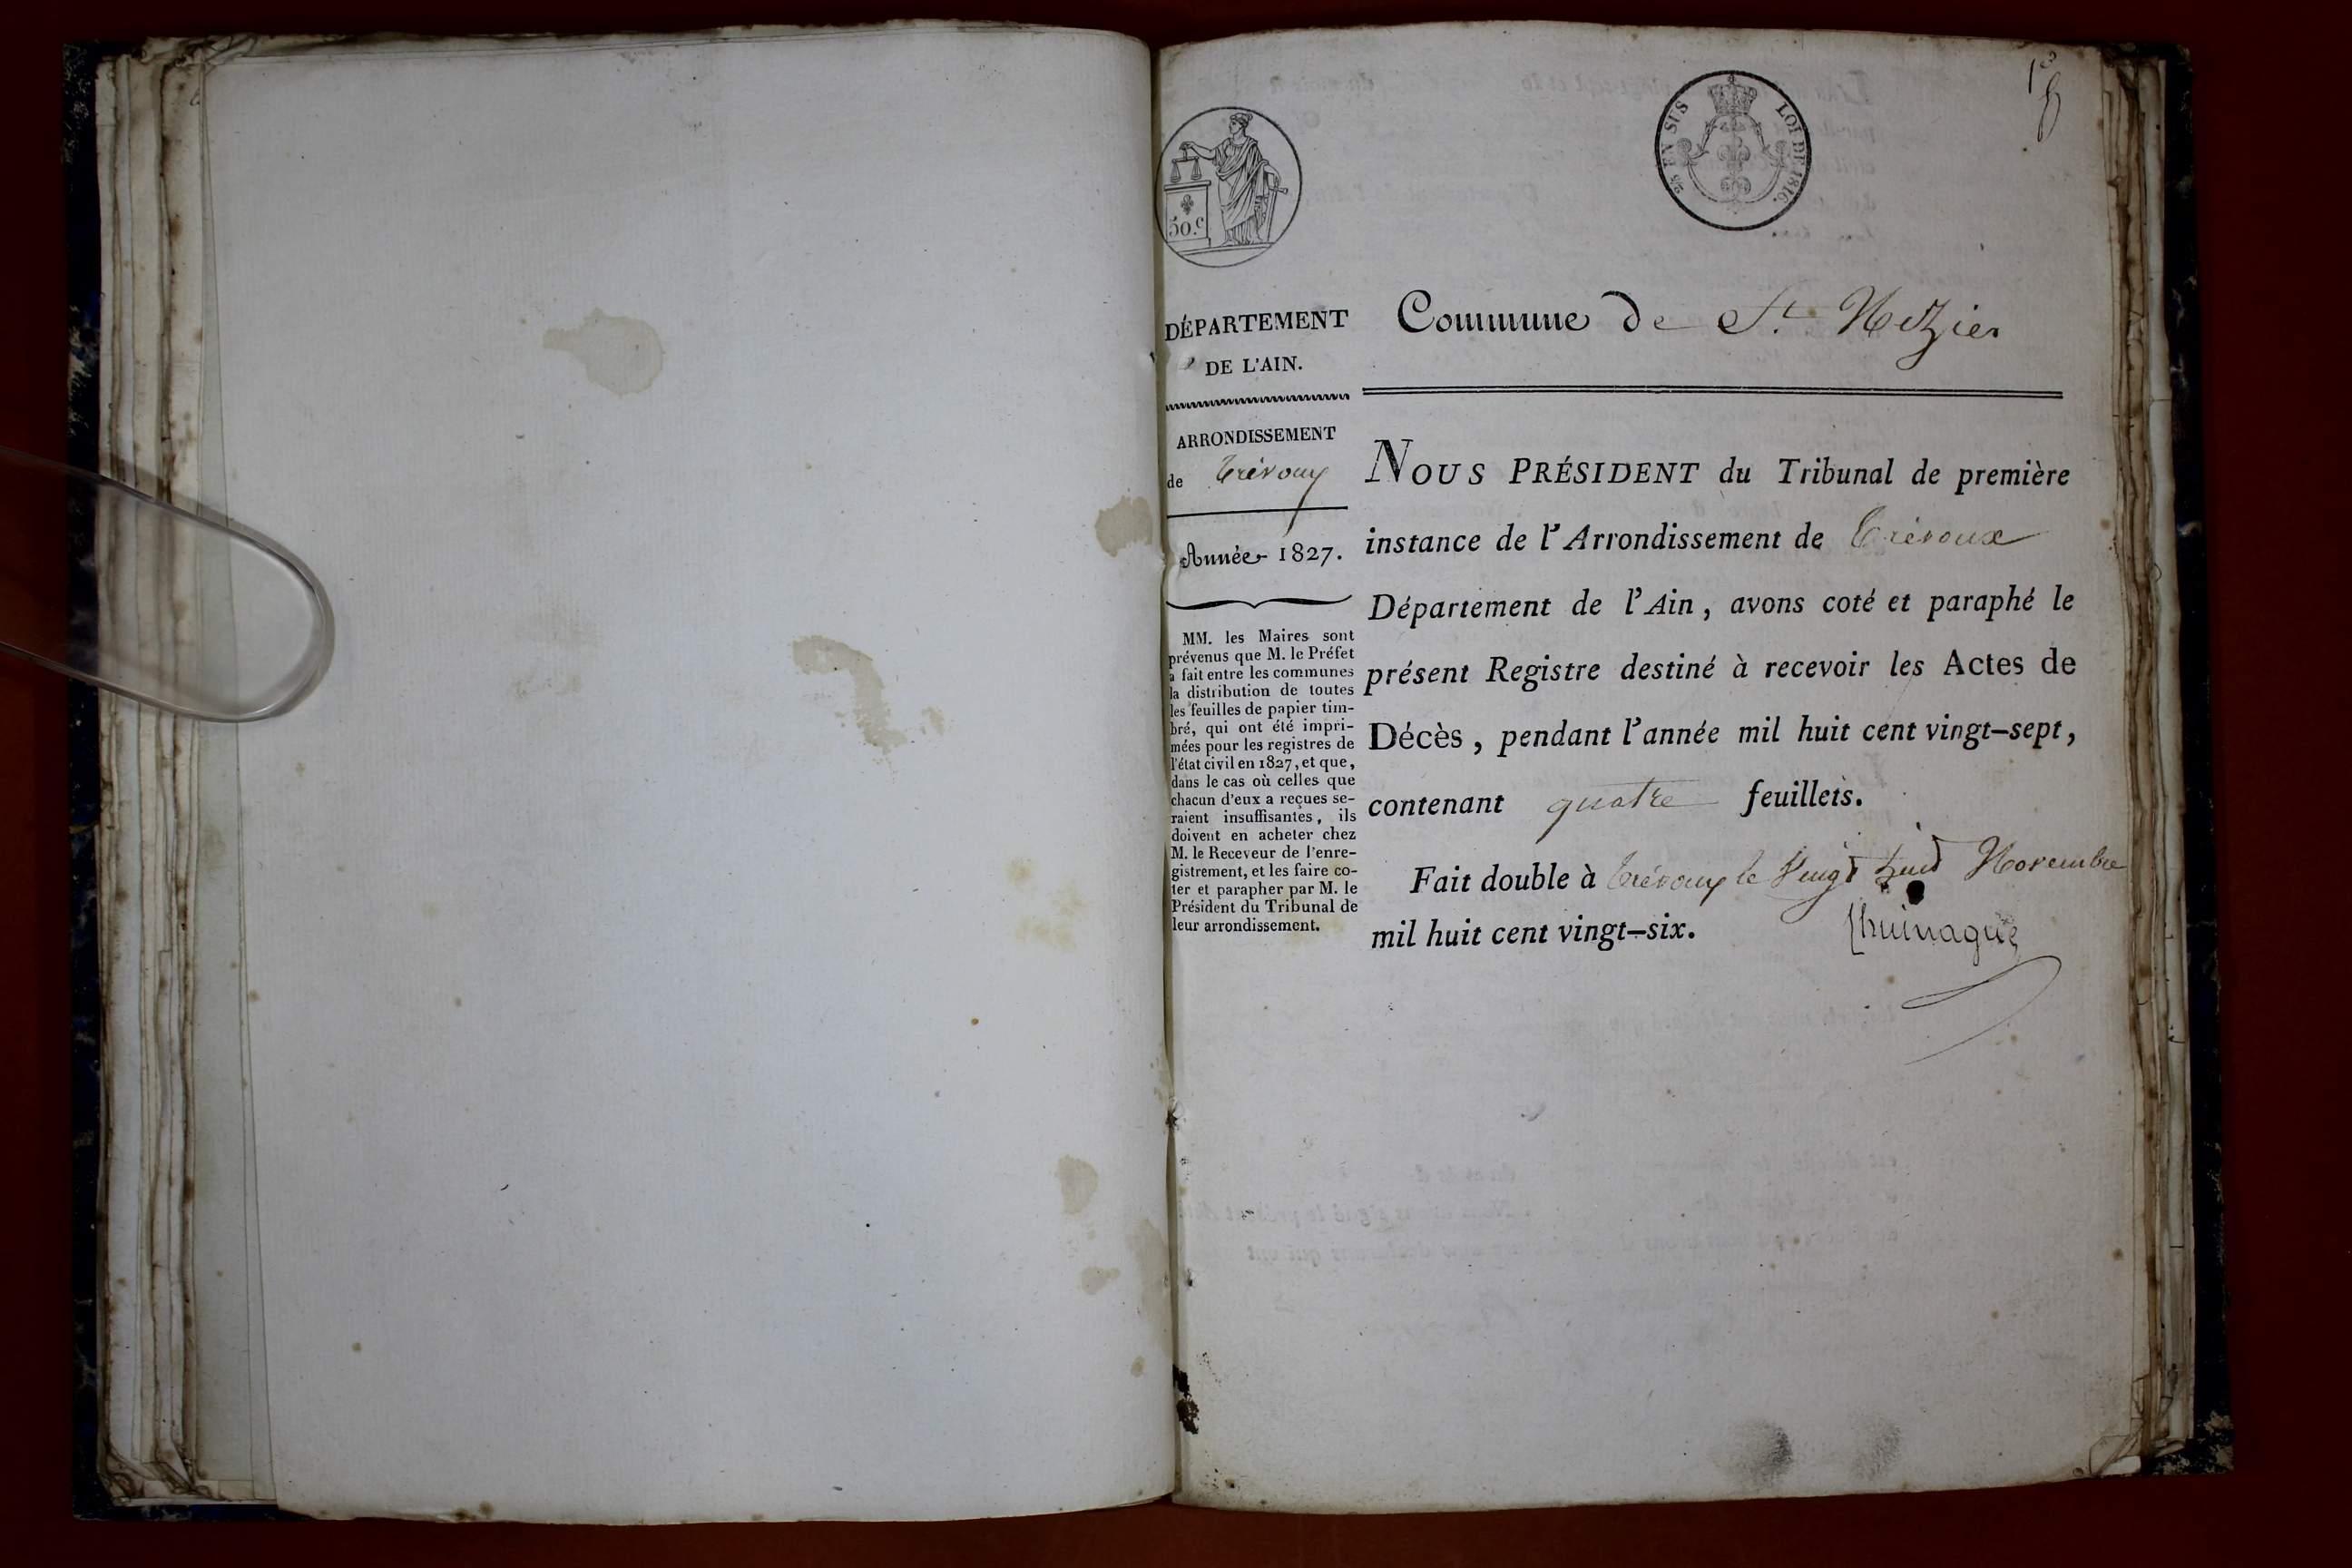 1er
50.c
2/5 EN SUS LOI DE 1816.
DÉPARTEMENT
DE L'AIN.
ARRONDISSEMENT
de Trévoux
Année 1827.
MM. les Maires sont
prévenus que M. le Préfet
a fait entre les communes
la distribution de toutes
les feuilles de papier tim-
bré, qui ont été impri-
mées pour les registres de
l'état civil en 1827, et que,
dans le cas où celles que
chacun d'eux a reçues se-
raient insuffisantes, ils
doivent en acheter chez
M. le Receveur de l'enre-
gistrement, et les faire co-
ter et parapher par M. le
Président du Tribunal de
leur arrondissement.
Commune de St. Nizier
NOUS PRÉSIDENT du Tribunal de première
instance de l'Arrondissement de Trévoux
Département de l'Ain, avons coté et paraphé le
présent Registre destiné à recevoir les Actes de
Décès, pendant l'année mil huit cent vingt-sept,
contenant quatre feuillets.
Fait double à Trévoux le Vingt huit Novembre
mil huit cent vingt-six.